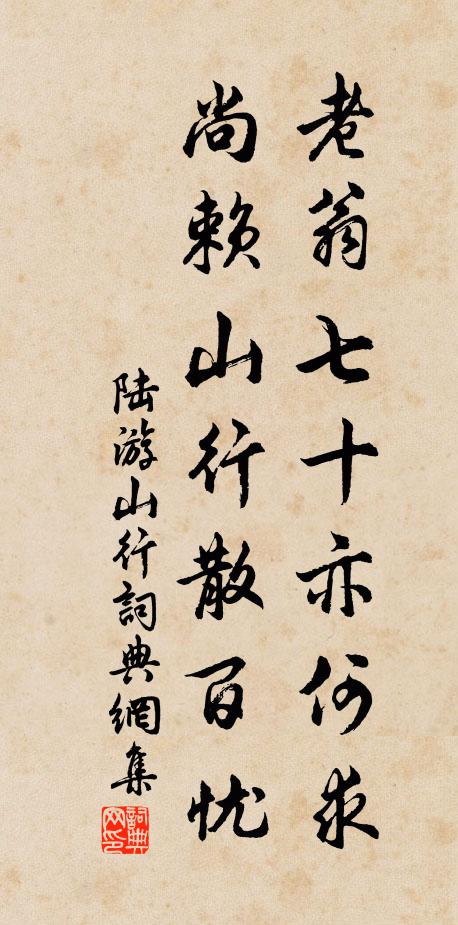 老翁七十亦何求
尚赖山行散百忧
陆游山行詞典網集
詞典
网印